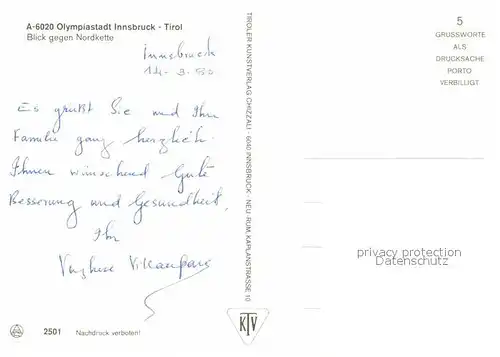 A-6020 Olympiastadt Innsbruck - Tirol
Blick gegen Nordkette
Innsbruck
Es grüßt Sie und Ihre
Familie ganz herzlich.
Ihnen wünschend Gute
Besserung und Gesundheit,
Ihr
2501 Nachdruck verboten!
TIROLER KUNSTVERLAG CHIZZALI · 6040 INNSBRUCK - NEU-RUM, KAPLANSTRASSE 10
KTV
5
GRUSSWORTE
ALS
DRUCKSACHE
PORTO
VERBILLIGT
privacy protection
Datenschutz